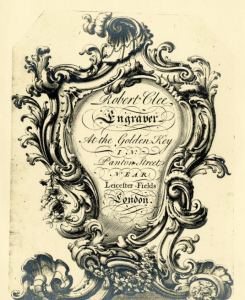 Robert Clee
Engraver
At the Golden Key
IN
Panton Street
NEAR
Leicester-Fields
London.